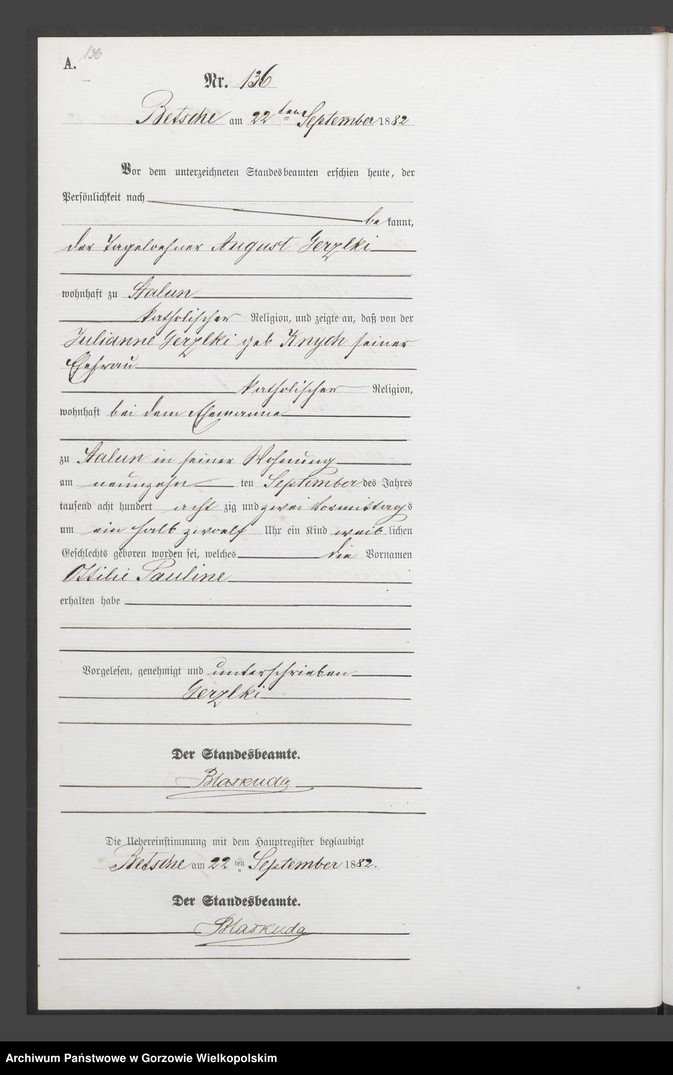 136
A.
Nr. 136
Betsche am 22ten September 1882
Vor dem unterzeichneten Standesbeamten erschien heute, der
Persönlichkeit nach
be kannt,
der Tageloehner August
wohnhaft zu Stalun
katholischer Religion, und zeigte an, daß von der
Julianne geb Knych seiner
Ehefrau
katholischer Religion,
wohnhaft bei dem Ehemanne
zu Stalun in seiner Wohnung
am neunzehn ten September des Jahres
tausend acht hundert acht zig und zwei Vormittags
um ein halb zwoelf Uhr ein Kind weib lichen
Geschlechts geboren worden sei, welches die Vornamen
Ottilie Pauline
erhalten habe
Vorgelesen, genehmigt und unterschrieben
Der Standesbeamte.
Die Uebereinstimmung mit dem Hauptregister beglaubigt
Betsche am 22 ten September 1882.
Der Standesbeamte.
Archiwum Państwowe w Gorzowie Wielkopolskim